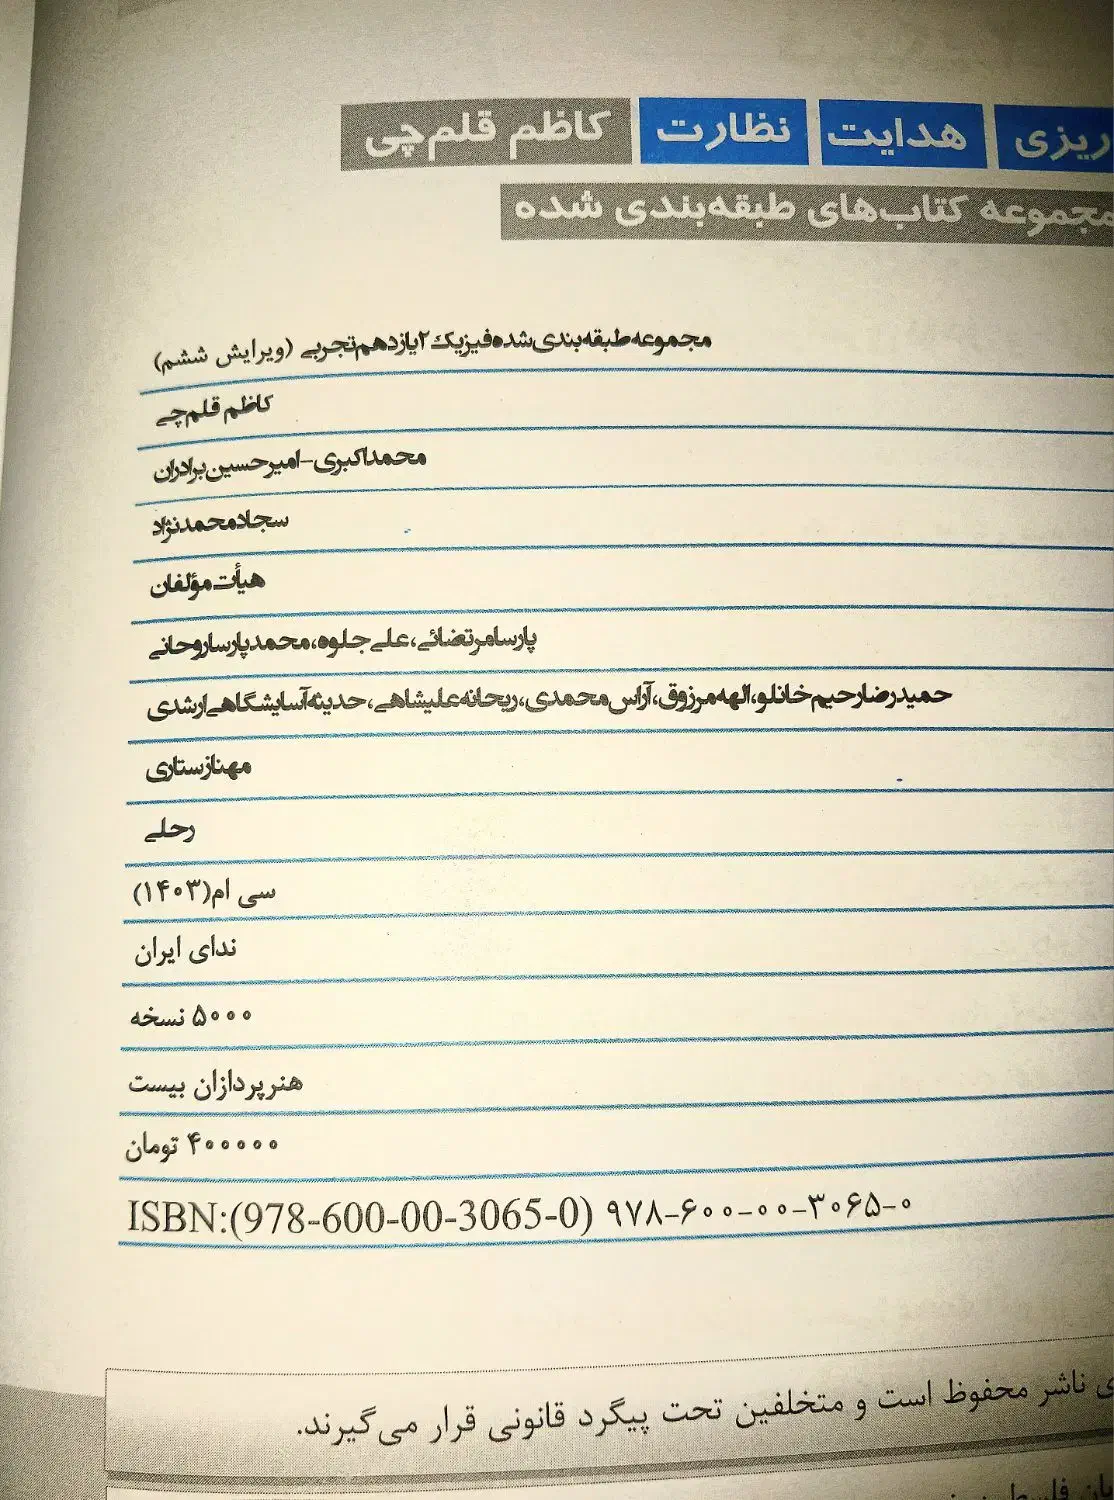 ریزی هدایت نظارت کاظم قلم‌چی
مجموعه کتاب‌های طبقه‌بندی شده
مجموعه طبقه‌بندی شده فیزیک ۲ یازدهم تجربی (ویرایش ششم)
کاظم قلم‌چی
محمد اکبری - امیرحسین برادران
سجاد محمدنژاد
هیأت مؤلفان
پارسا مرتضائی، علی جلوه، محمدپارسا روحانی
حمیدرضا رحیم خانلو، الهه مرزوق، آراس محمدی، ریحانه علیشاهی، حدیثه آسایشگاهی ارشدی
مهناز ستاری
رحلی
سی ام(۱۴۰۳)
ندای ایران
۵۰۰۰ نسخه
هنرپردازان بیست
۴۰۰۰۰۰ تومان
ISBN:(978-600-00-3065-0) ۹۷۸-۶۰۰-۰۰-۳۰۶۵-۰
ناشر محفوظ است و متخلفین تحت پیگرد قانونی قرار می‌گیرند.